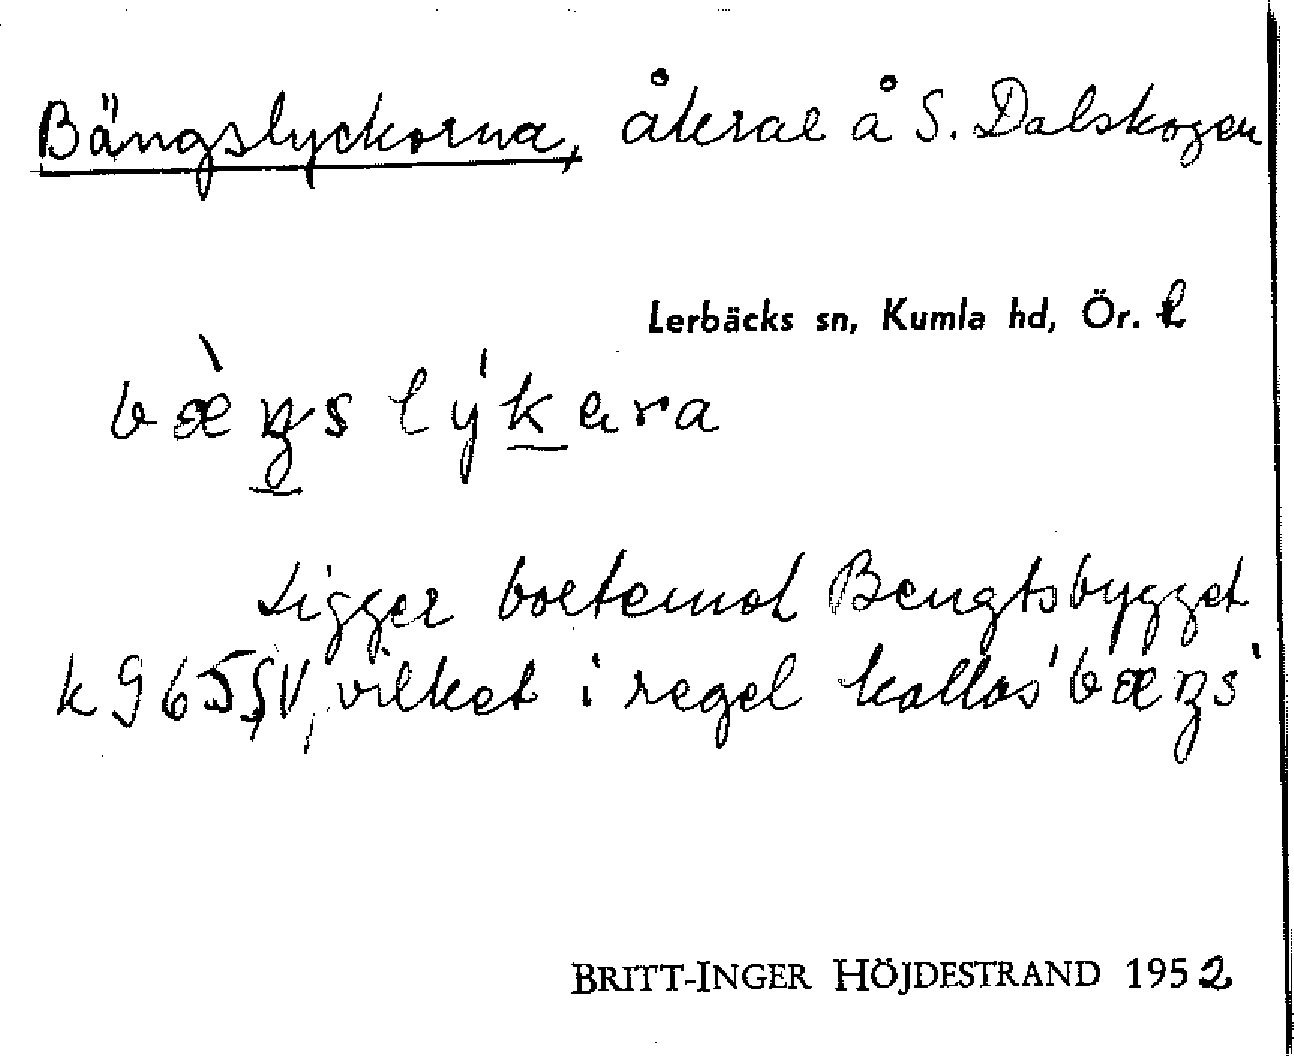 Bängslyckorna, åkrar å S. Dalskogen
Lerbäcks sn, Kumla hd, Ör. l
bæ̀ŋs lýkɐra
Ligger bortemot Bengtsbygget
k 965 SV, vilket i regel kallas 'bæŋs'
BRITT-INGER HÖJDESTRAND 1952